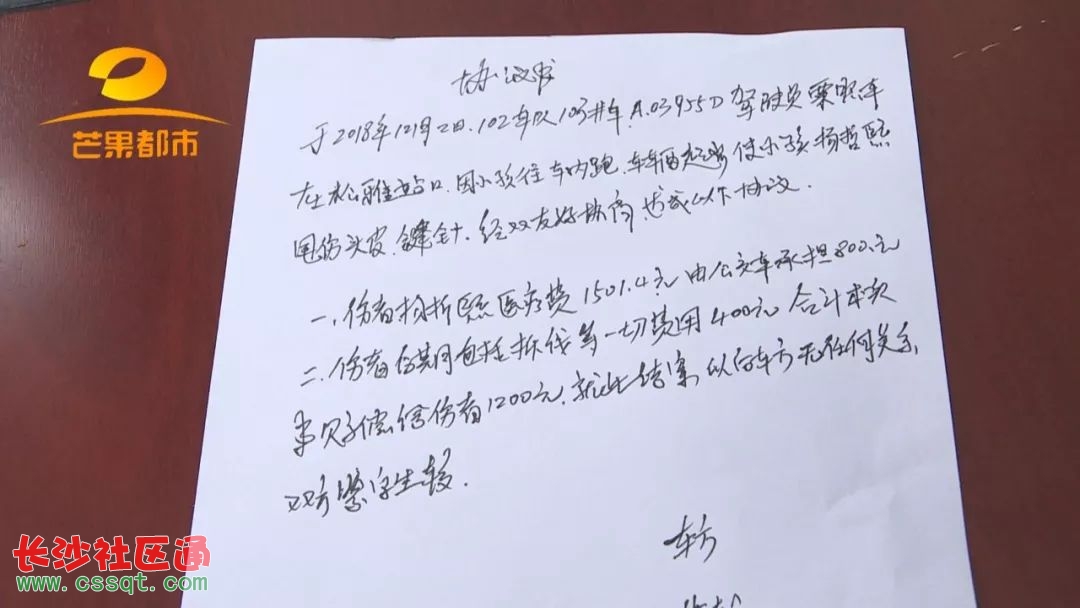 芒果都市
协议书
于2018年12月2日.102车队103#车.A.03955D 驾驶员栗
在松雅站口.因小孩往车内跑.车辆起步使小孩杨哲熙
甩伤头皮.缝针.经双方友好协商.达成以下协议.
一、伤者杨哲熙医疗费1501.4元由公交车承担800.元
二.伤者后期包括拆线等一切费用400元合计
赔偿给伤者1200元.就此结案.以后车方无任何关系.
双方签字生效.
车方
长沙社区通
www.cssqt.com